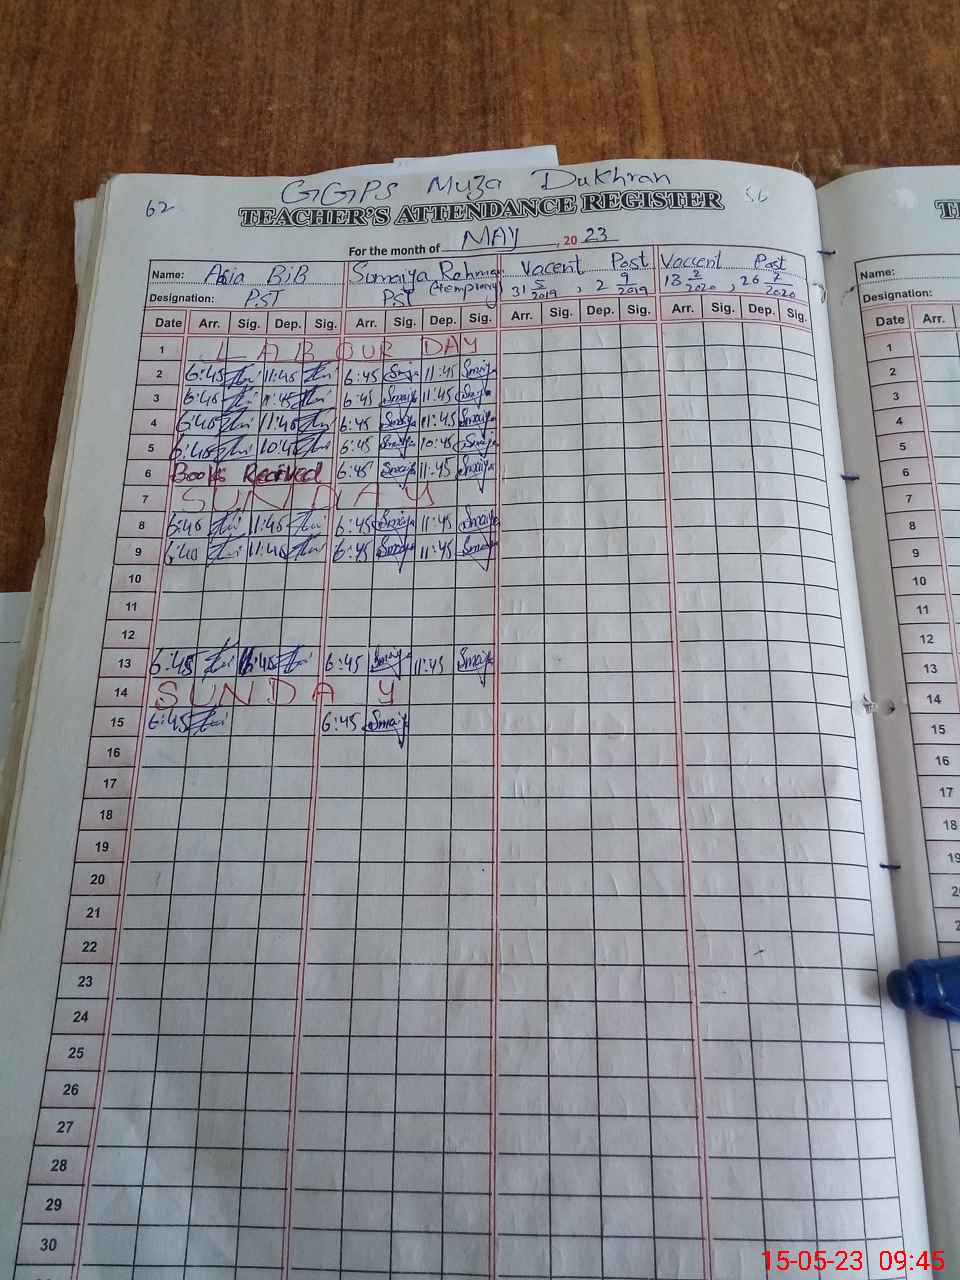 GGPS Muza Dukhran
62
56
TEACHER'S ATTENDANCE REGISTER
For the month of MAY, 2023
Name: Asia BiB Sumaiya Rehman Vaccent Post Vaccent Post
(temprory) 31 5/2019, 2 9/2019 13 2/2020, 26 2/2020
Designation: PST PST
Date Arr. Sig. Dep. Sig. Arr. Sig. Dep. Sig. Arr. Sig. Dep. Sig. Arr. Sig. Dep. Sig.
1 LABOUR DAY
2 6:45 11:45 6:45 Smaiya 11:45 Smaiya
3 6:45 11:45 6:45 Smaiya 11:45 Smaiya
4 6:45 11:45 6:45 Smaiya 11:45 Smaiya
5 6:45 10:45 6:45 Smaiya 10:45 Smaiya
6 Books Received 6:45 Smaiya 11:45 Smaiya
7 SUNDAY
8 6:45 11:45 6:45 Smaiya 11:45 Smaiya
9 6:40 11:40 6:45 Smaiya 11:45 Smaiya
10
11
12
13 6:45 11:45 6:45 Smaiya 11:45 Smaiya
14 SUNDAY
15 6:45 6:45 Smaiya
16
17
18
19
20
21
22
23
24
25
26
27
28
29
30
Name:
Designation:
Date Arr.
1
2
3
4
5
6
7
8
9
10
11
12
13
14
15
16
17
18
19
15-05-23 09:45